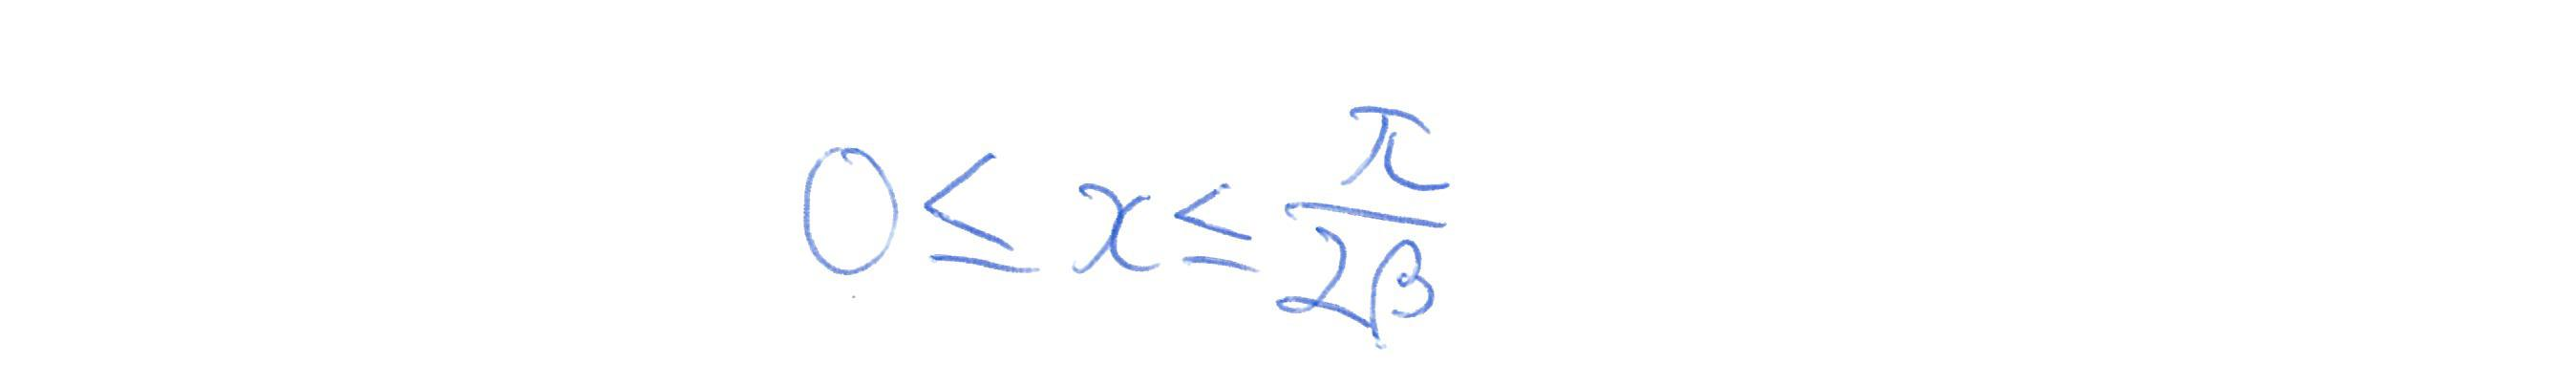 0 ≤ x ≤ π/2β